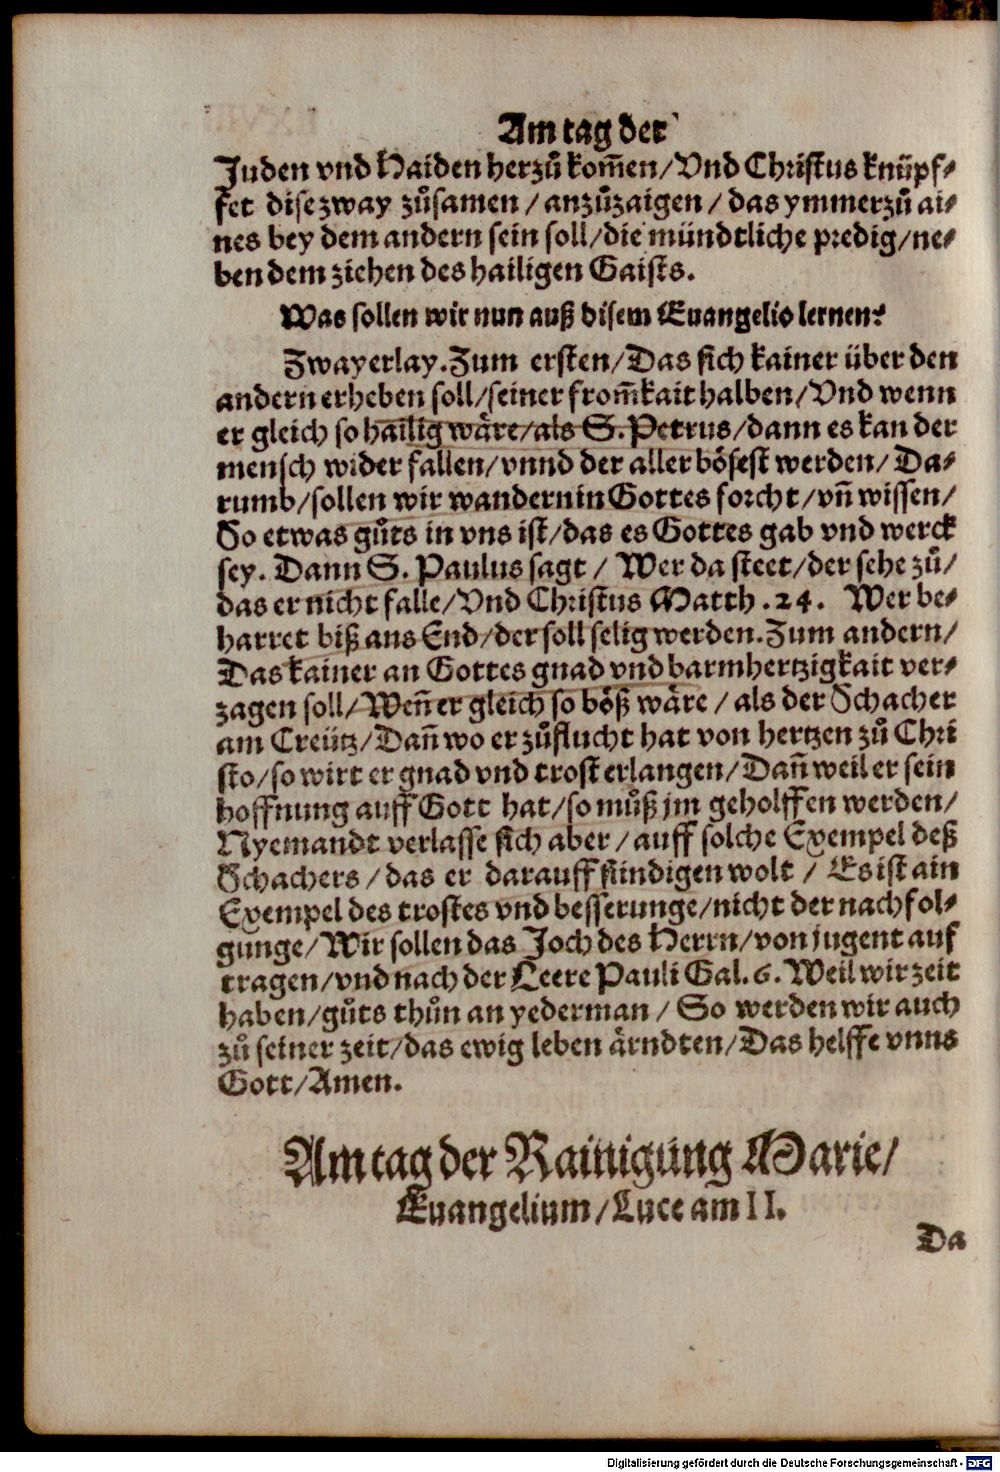 Am tag der
Juden vnd Haiden herzuͦ kom̃en/ Vnd Christus knüpf-
fet dise zway zuͦsamen / anzuͦzaigen / das ymmerzuͦ ai-
nes bey dem andern sein soll/die mündtliche predig/ne-
ben dem ziehen des hailigen Gaists.
Was sollen wir nun auß disem Euangelio lernen?
Zwayerlay. Zum ersten/Das sich kainer über den
andern erheben soll/seiner from̃kait halben/Vnd wenn
er gleich so hailig wäre/als S. Petrus/dann es kan der
mensch wider fallen/vnnd der aller bösest werden/ Da-
rumb/sollen wir wandern in Gottes forcht/vñ wissen/
So etwas guͦts in vns ist/das es Gottes gab vnd werck
sey. Dann S. Paulus sagt / Wer da steet/der sehe zuͦ/
das er nicht falle/Vnd Christus Matth .24. Wer be-
harret biß ans End/der soll selig werden. Zum andern/
Das kainer an Gottes gnad vnd barmhertzigkait ver-
zagen soll/Weñ er gleich so böß wäre / als der Schacher
am Creütz/Dañ wo er zuͦflucht hat von hertzen zuͦ Chri
sto/so wirt er gnad vnd trost erlangen/Dañ weil er sein
hoffnung auff Gott hat/so muͦß jm geholffen werden/
Nyemandt verlasse sich aber / auff solche Exempel deß
Schachers / das er darauff sündigen wolt / Es ist ain
Exempel des trostes vnd besserunge/nicht der nachfol-
gunge/Wir sollen das Joch des Herrn/von jugent auf
tragen/vnd nach der Leere Pauli Gal. 6. Weil wir zeit
haben/guͦts thuͦn an yederman / So werden wir auch
zuͦ seiner zeit/das ewig leben ärndten/Das helffe vnns
Gott/Amen.
Am tag der Rainigung Marie/
Euangelium/Luce am II.
Da
Digitalisierung gefördert durch die Deutsche Forschungsgemeinschaft - DFG